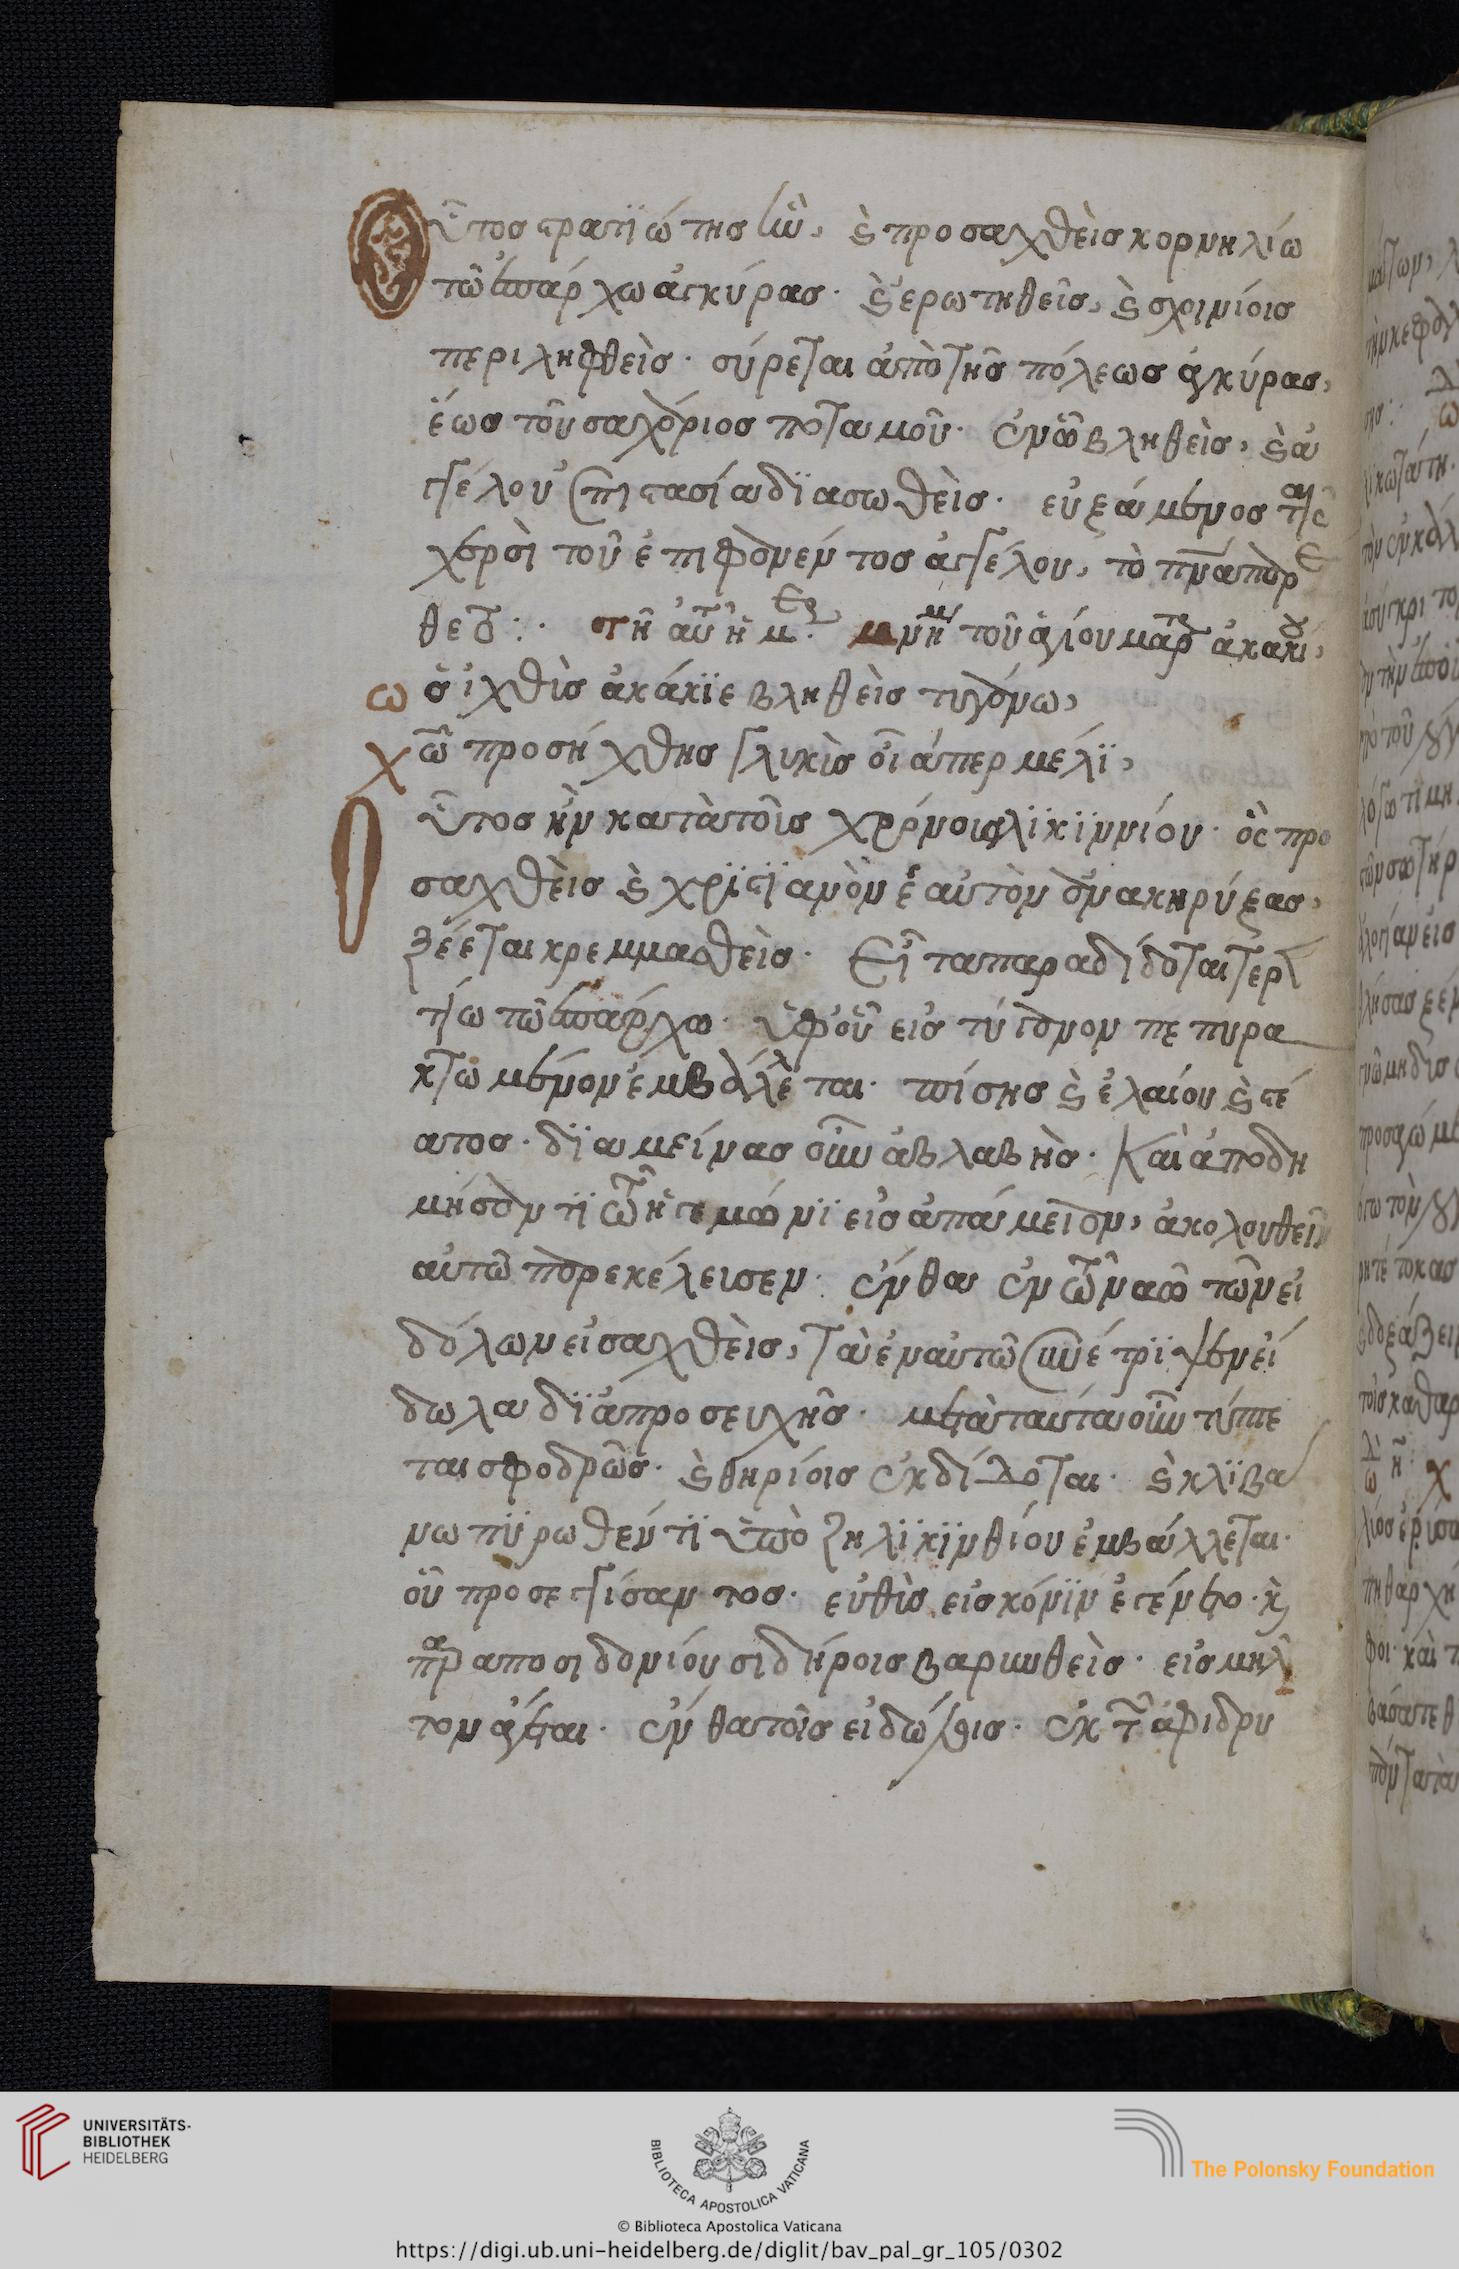 Οὗτος στρατϊώτης ἦν, καὶ προσαχθεὶς κορνηλίω
τῶ ἐπάρχω ἀγκύρας. καὶ ἐρωτηθεὶς, καὶ σχοινίοις
περιληφθεὶς. σύρεται ἀπὸ τῆς πόλεως ἀγκύρας,
ἕως τοῦ σαγάριος ποταμοῦ. ἐν ὧ βληθεὶς, καὶ ἀγ
γέλου ἐπιστασία δϊασωθεὶς. εὐξάμενος ταῖς
χερσὶ τοῦ ἐπιφανέντος ἀγγέλου, τὸ πνᾶ παρε
θετο:. τῆ αὐτῆ ἡμέρ. μνήμη τοῦ ἁγίου μάρτ ἀκακίου,
ὡς ἰχθὶς ἀκάκϊε βληθεὶς τηγάνω,
χῶ προσήχθης γλυκὶς οἷάπερ μέλϊ,
Οὗτος ἦν κατὰ τοῖς χρόνοις λϊκϊννίου. ὃς προ
σαχθεὶς καὶ χρϊστϊανὸν ἑαυτὸν ἀνακηρύξας,
ξέεται κρεμμασθεὶς. Εἶτα παραδίδοται τερεν
τίω τῶ ἐπάρχω. ὑφ' οὗ εἰς τύγανον πεπυρα
κτωμένον ἐμβάλλεται. πίσης καὶ ἐλαίου καὶ στέ
ατος. δϊαμείνας οὖν ἀβλαβὴς. Καὶ ἀποδη
μήσαντϊ τῶ ἡγεμόνϊ εἰς ἀπάμειαν, ἀκολουθεῖν
αὐτῶ παρεκέλεισεν. ἔνθα ἐν τῶ ναῶ τῶν εἰ
δόλων εἰσαχθεὶς, τὰ ἐν αὐτῶ συνέτρϊψεν εἴ
δωλα δϊὰ προσευχῆς. μετὰ ταῦτα οὖν τύπτε
ται σφοδρῶς. καὶ θηρίοις ἐκδίδοται. καὶ κλϊβά
νω πϋρωθέντϊ ὑπὸ ζηλϊκϊνθίου ἐμβάλλεται.
οὗ προσεγγίσαντος. εὐθὶς εἰς κόνϊν ἐγένετο. καὶ
παρὰ ποσιδονίου σιδήροις βαρυνθεὶς. εἰς μηλη
τον ἄγεται. ἔνθα τοῖς εἰδώλοις. ἐκ τῶν ἀφιδρυ
UNIVERSITÄTS-
BIBLIOTHEK
HEIDELBERG
BIBLIOTECA APOSTOLICA VATICANA
The Polonsky Foundation
© Biblioteca Apostolica Vaticana
https://digi.ub.uni-heidelberg.de/diglit/bav_pal_gr_105/0302